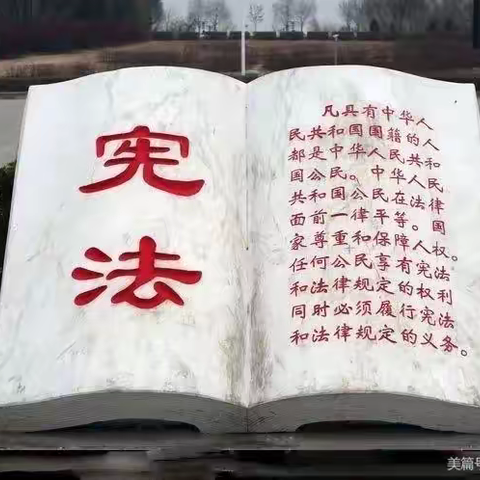 宪
法
凡具有中华人
民共和国国籍的人
都是中华人民共和
国公民。中华人民
共和国公民在法律
面前一律平等。国
家尊重和保障人权。
任何公民享有宪法
和法律规定的权利
同时必须履行宪法
和法律规定的义务。
美篇号